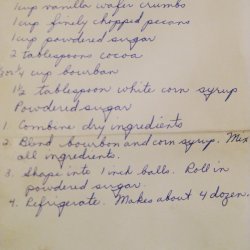 1 cup vanilla wafer crumbs
1 cup finely chopped pecans
1 cup powdered sugar
2 tablespoons cocoa
1/4 cup bourban
1½ tablespoon white corn syrup
Powdered sugar
1. Combine dry ingredients
2. Blend bourbon and corn syrup. Mix
all ingredients.
3. Shape into 1 inch balls. Roll in
powdered sugar.
4. Refrigerate. Makes about 4 dozen.